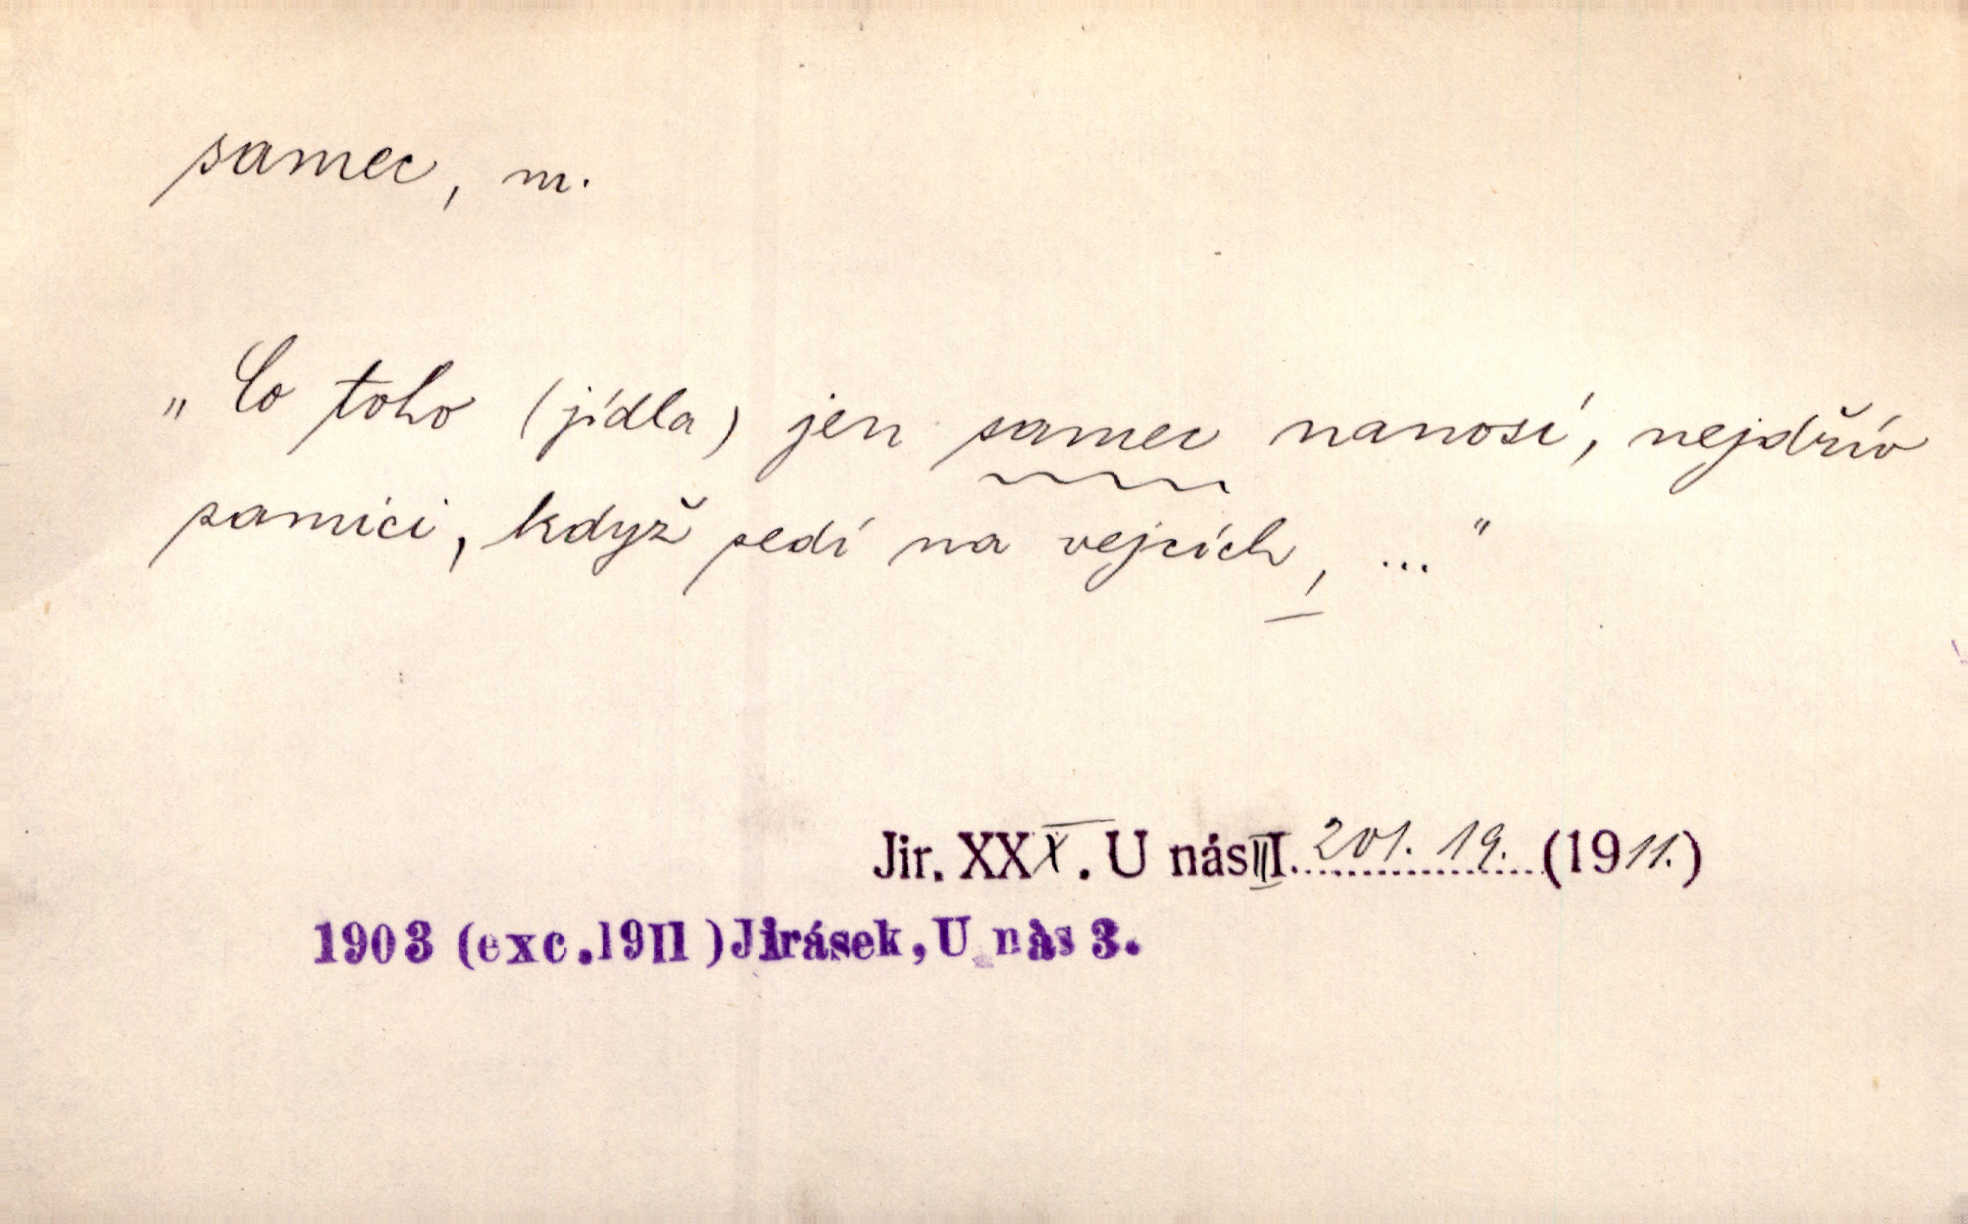 samec, m.
„Co toho (jídla) jen samec nanosí, nejdřív
samici, když sedí na vejcích, ..."
Jir. XXX. U nás III. 201. 19. (1911.)
1903 (exc. 1911) Jirásek, U nás 3.